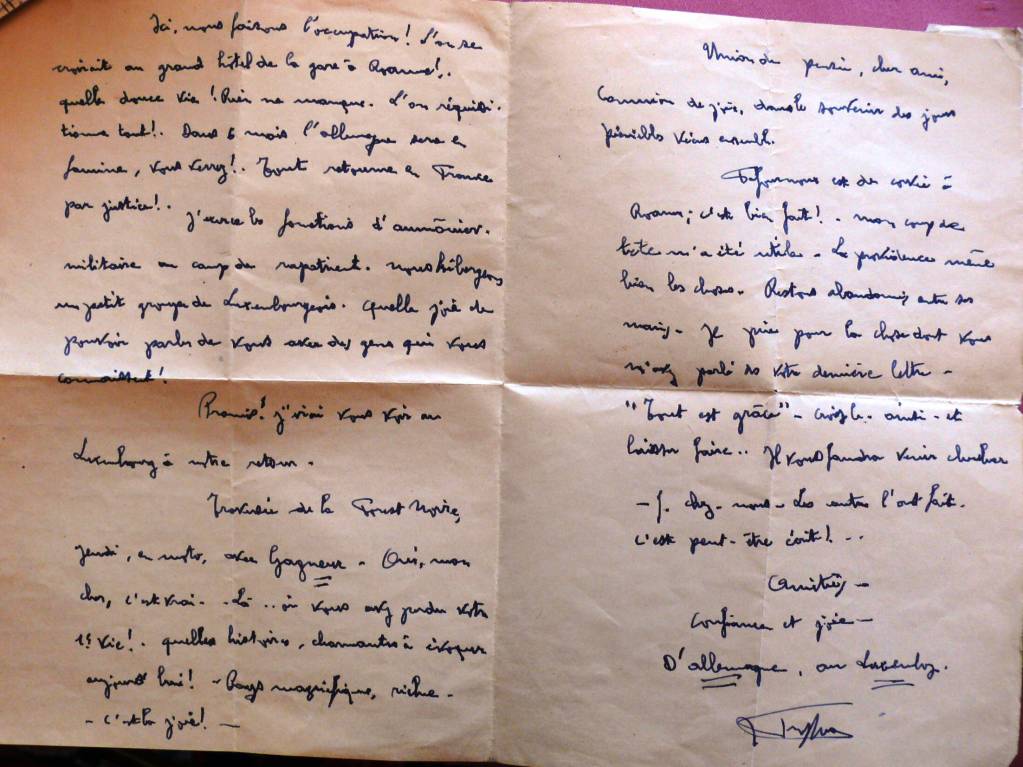 Ici, nous faisons l'occupation! L'on se
croirait au grand hôtel de la gare à Roanne!.
quelle douce vie! Rien ne manque. L'on réquisi-
tionne tout!. Dans 6 mois l'allemagne sera en
famine, vous verrez!. Tout retourne en France
par justice!.
J'exerce les fonctions d'aumônier.
militaire au camp de rapatrient. nous hébergeons
un petit groupe de Luxembourgeois. quelle joie de
pouvoir parler de vous avec des gens qui vous
connaissent!
Promis! j'irai vous voir au
Luxembourg à notre retour.
Traversée de la Forêt Noire,
jeudi, en moto, avec Gagneux - Oui, mon
cher, c'est vrai. - Là .. où vous avez perdu votre
1e vie!. quelles histoires, charmantes à évoquer
aujourd'hui! - Pays magnifique, riche -
- c'est la joie! -
Union de pensée, cher ami,
Communion de joie, dans le souvenir des jours
pénibles vécus ensemble.
est de corvée à
Roanne; c'est bien fait! - mon coup de
tête m'a été utile - La providence mène
bien les choses. Restons abandonnés entre ses
mains - Je prie pour la chose dont vous
m'avez parlé ds votre dernière lettre -
"Tout est grâce" - croyez-le - ainsi - et
laissez faire .. Il vous faudra venir chercher
- f. chez - nous - Les autres l'ont fait.
c'est peut-être écrit! - .
Amitiés -
Confiance et joie -
D'allemagne, au Luxembg.